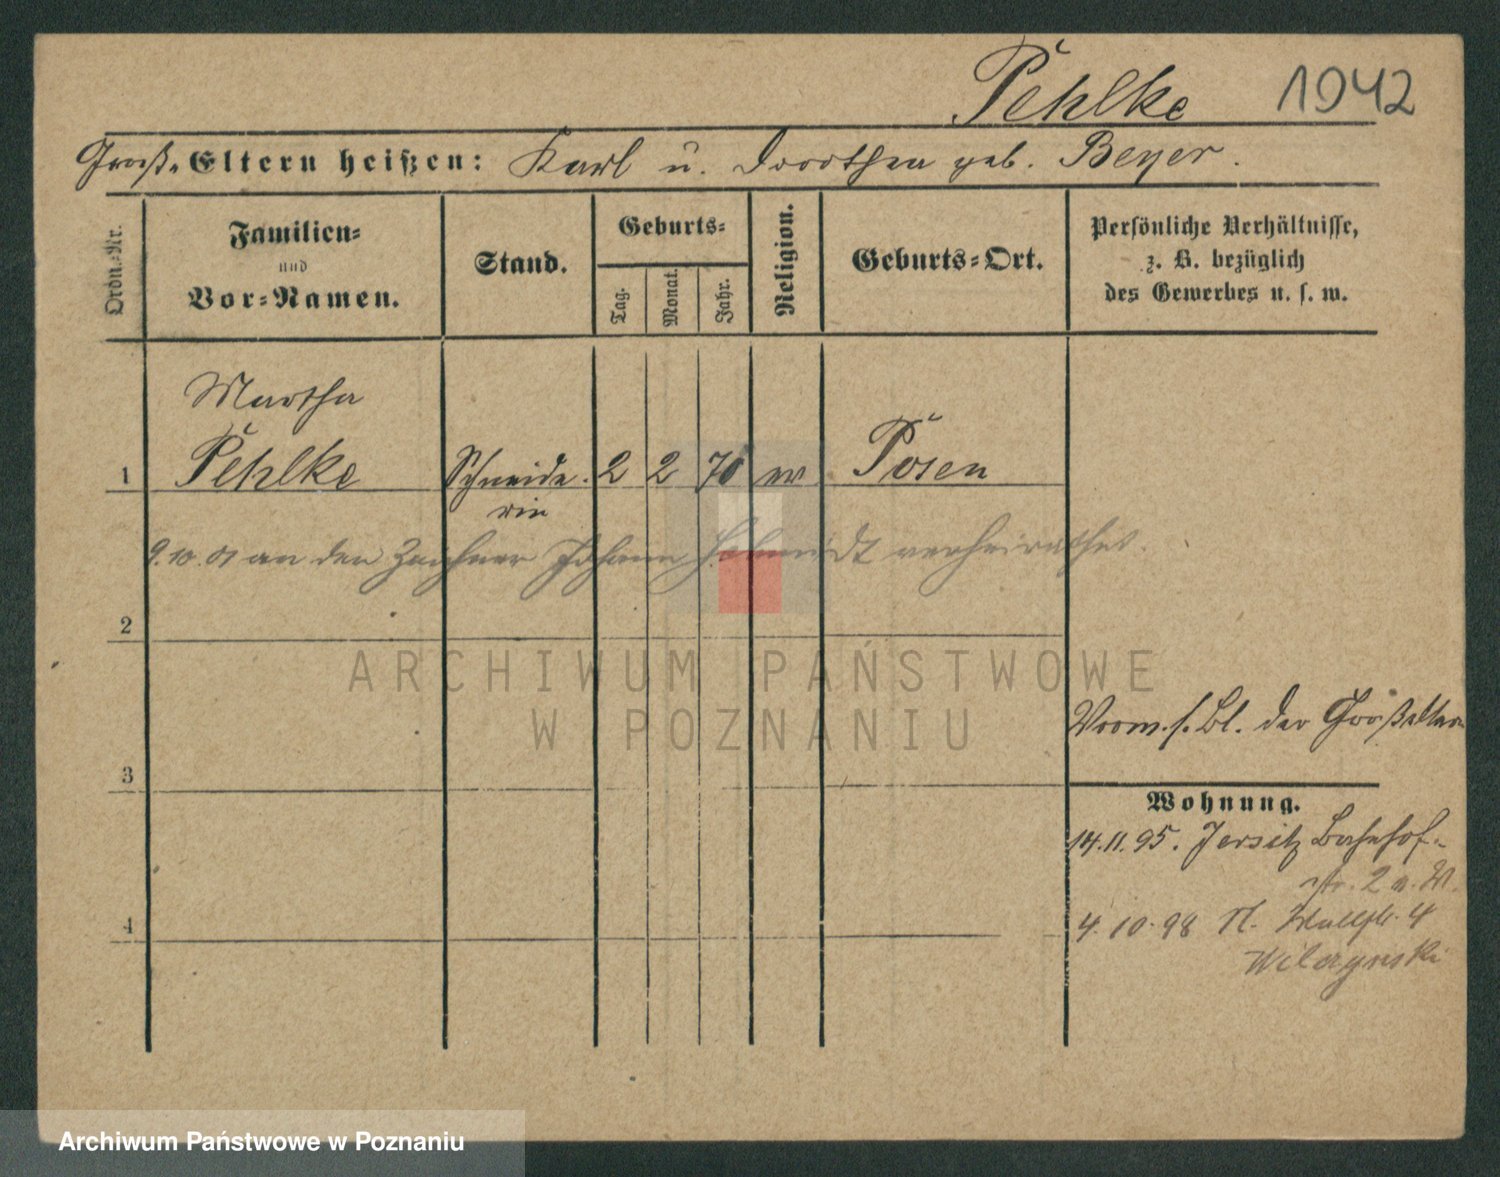 Pehlke 1042
Groß-Eltern heißen: Karl u. Dorothea geb. Beyer.
Ordn.-Nr.
Familien-
und
Vor-Namen.
Stand.
Geburts-
Tag.
Monat.
Jahr.
Religion.
Geburts-Ort.
Persönliche Verhältnisse,
z. B. bezüglich
des Gewerbes u. s. w.
Martha
1 Pehlke Schneide- 2 2 70 ev Posen
rin
9.10.01 an den Johann Schmidt verheirathet.
2
ARCHIWUM PAŃSTWOWE
W POZNANIU
Vorm. s. Bl. der Großeltern
3
Wohnung.
14.11.95. Jersitz Bahnhof-
str. 2 a. W.
4
4.10.98 Wallstr. 4
Archiwum Państwowe w Poznaniu